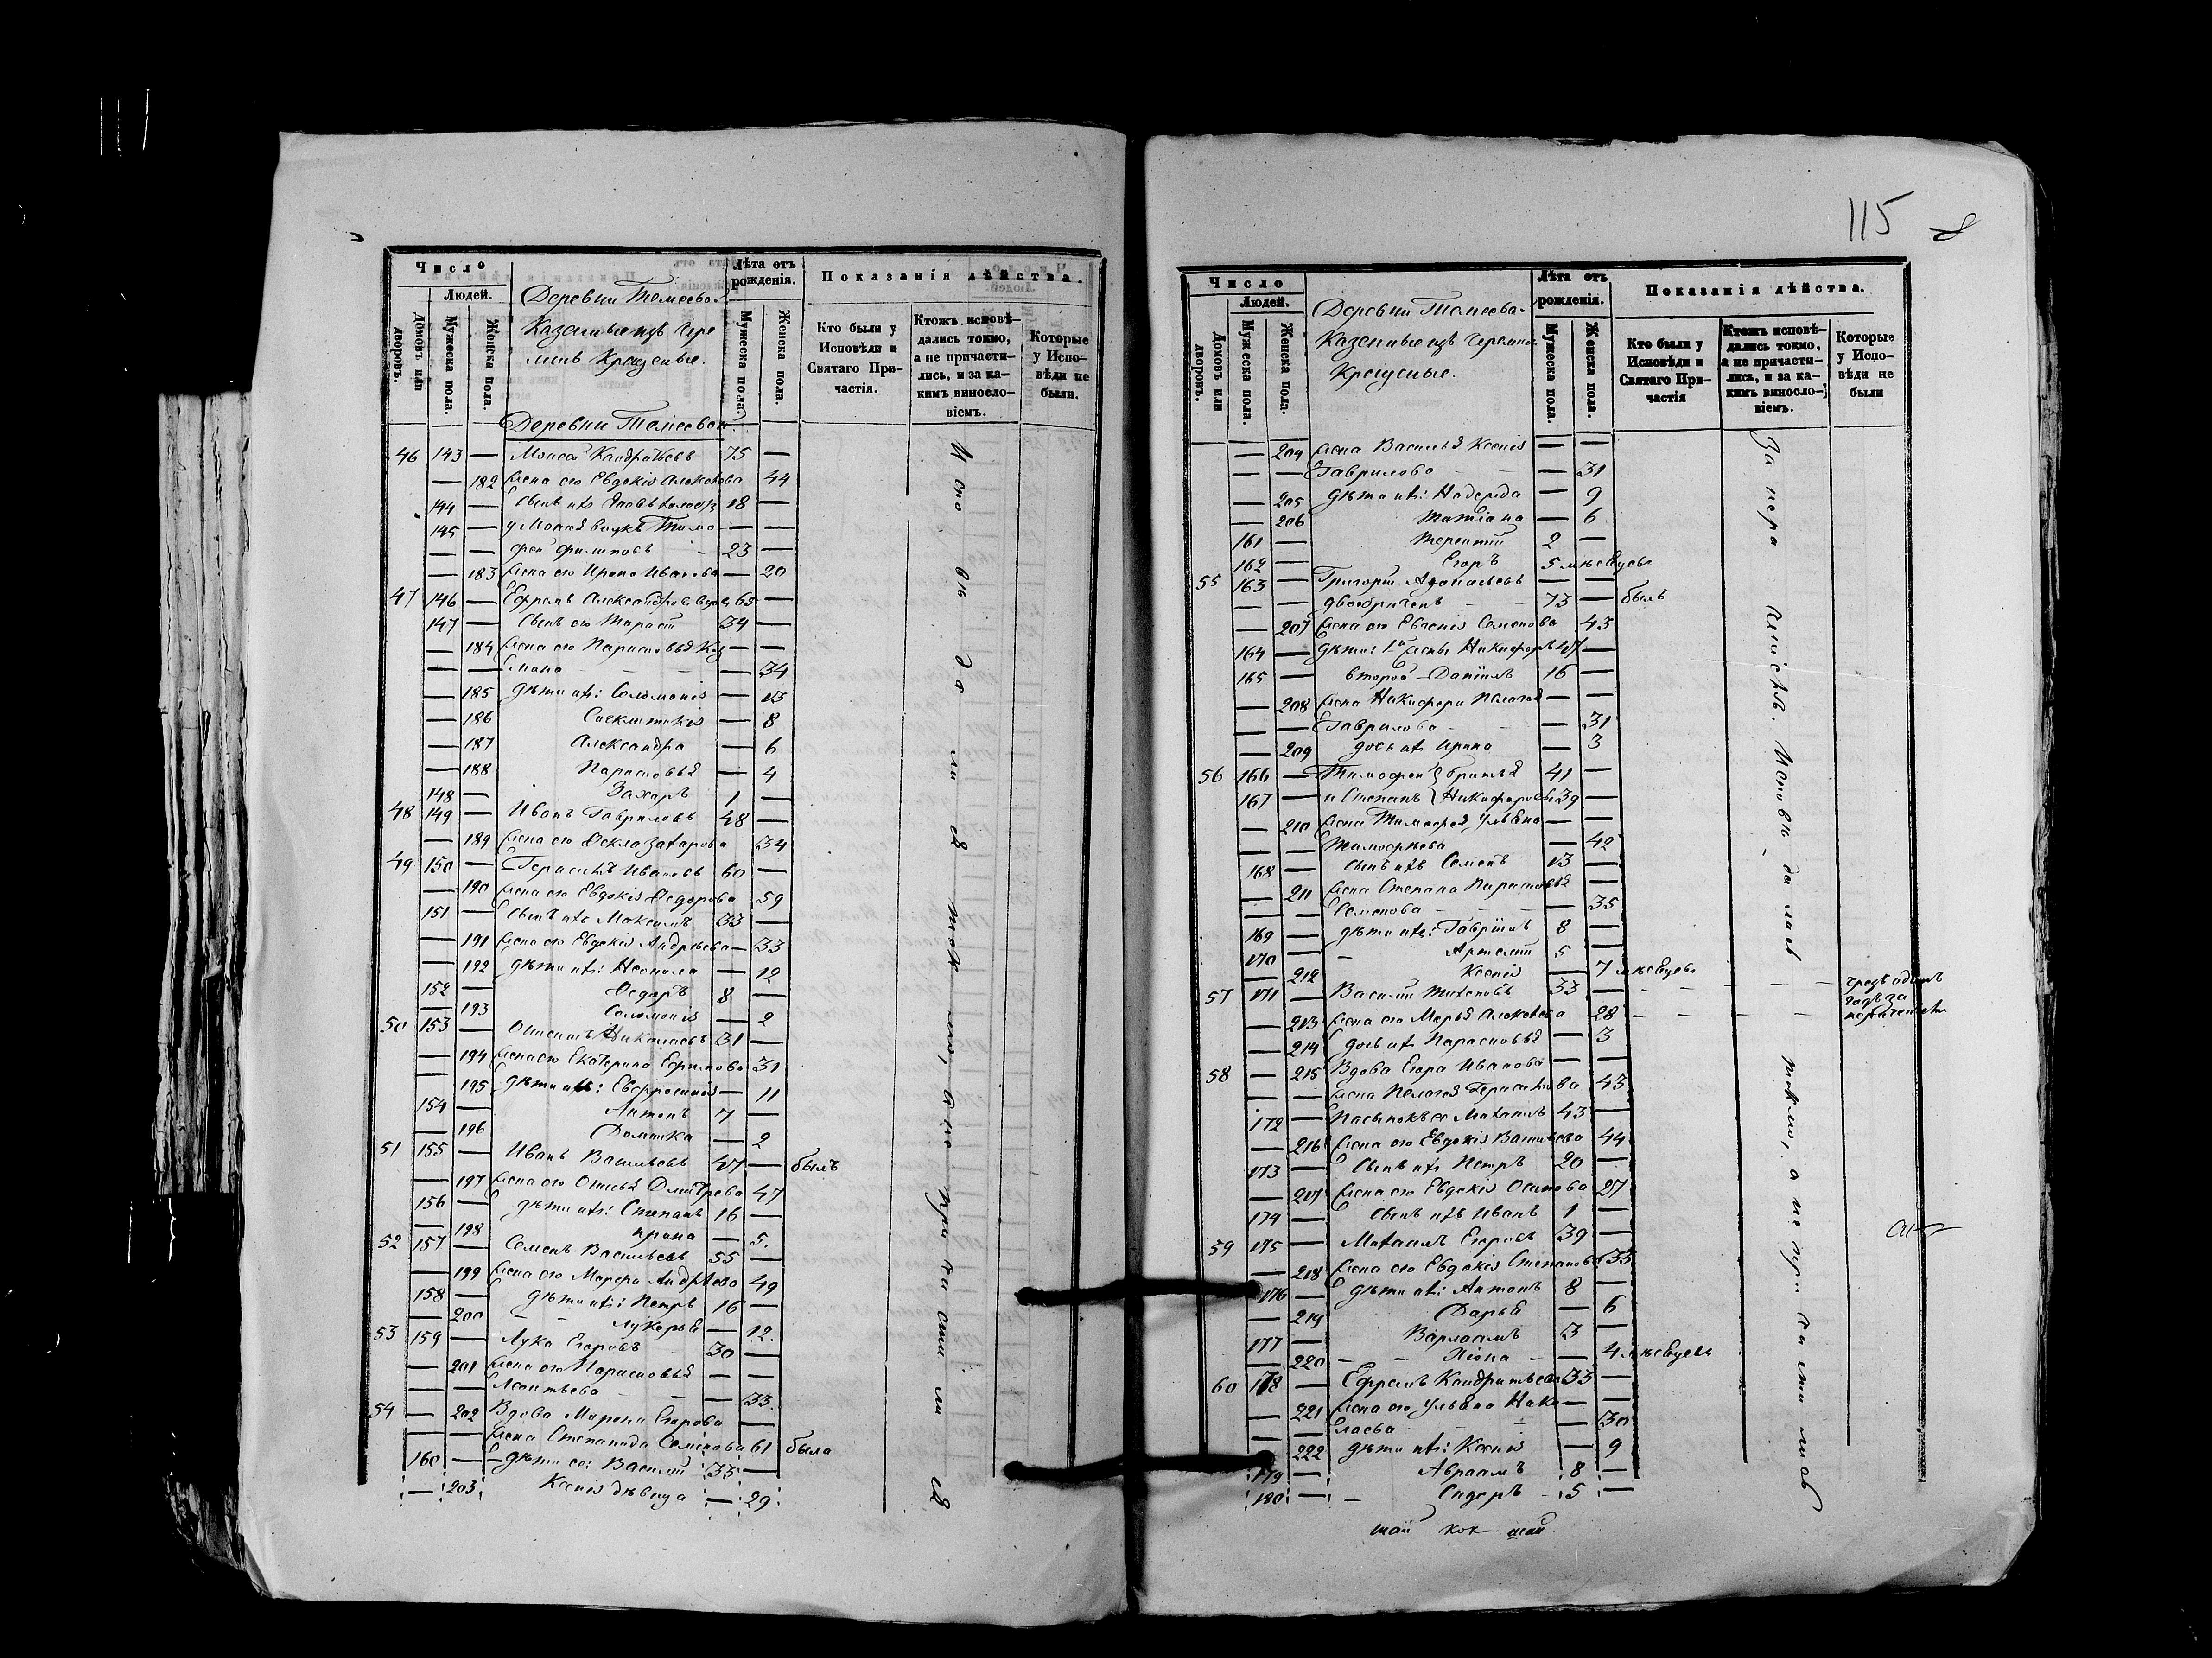 Число
Людей.
Домовъ или дворовъ.
Мужеска пола.
Женска пола.
Деревни Томеевой
Казенные изъ Чере
мисъ Крещеные.
Лѣта отъ рожденія.
Мужеска пола.
Женска пола.
Показанія дѣйства.
Кто были у Исповѣди и Святаго Причастія.
Ктожъ исповѣдались токмо, а не причастились, и за какимъ винословіемъ.
Которые у Исповѣди не были.
Деревни Томеевой
46 143 — Моисей Кондратьевъ 75 —
— 182 жена его Евдокія Алексѣева 44
144 — сынъ ихъ 18 —
145 — у Моисея внукъ Тимо — —
— — фей Филиповъ 23 —
— 183 жена его Ирина Иванова — 20
47 146 — Ефремъ Александровъ вдовъ 65 —
147 — сынъ его Тарасій 34 —
— 184 жена его Парасковья Коз — —
— — мина — 34
— 185 дѣти ихъ: Соломонія — 13
— 186 Синклитикія — 8
— 187 Александра — 6
— 188 Парасковья — 4
148 — Захаръ 1 —
48 149 — Иванъ Гавриловъ 48 —
— 189 жена его Ѳекла Захарова 34
49 150 — Герасимъ Ивановъ 60 —
— 190 жена его Евдокія Ѳедорова 59
151 — сынъ ихъ Максимъ 33 —
— 191 жена его Евдокія Андрѣева — 33
— 192 дѣти ихъ: Неонила — 12
152 — Ѳедоръ 8 —
— 193 Соломонія — 2
50 153 — Онисимъ Николаевъ 31 —
— 194 жена его Екатерина Ефимова 31
— 195 дѣти ихъ: Евфросинія — 11
154 — Антонъ 7 —
— 196 Домника — 2
51 155 — Иванъ Васильевъ 47 — былъ
— 197 жена его Онисья Дмитрева 47
156 — дѣти ихъ: Степанъ 16 —
— 198 Ирина — 5.
52 157 — Семенъ Васильевъ 55 —
— 199 жена его Марфа Андрѣева 49
158 — дѣти ихъ: Петръ 16 —
— 200 Лукерья — 12.
53 159 — Лука Егоровъ 30 —
— 201 жена его Парасковья — —
— — Леонтьева — 33.
54 — 202 Вдова Марина Егорова —
жена Степанида Семенова 61 была
160 — дѣти ее: Василій 33 —
— 203 Ксенія дѣвица — 29
Исповѣдались токмо, а не причастились
115
8
Число
Людей.
Домовъ или дворовъ.
Мужеска пола.
Женска пола.
Деревни Томеева
Казенные изъ Черемисъ
Крещеные.
Лѣта отъ рожденія.
Мужеска пола.
Женска пола.
Показанія дѣйства.
Кто были у Исповѣди и Святаго Причастія
Ктожъ исповѣдались токмо, а не причастились, и за какимъ винословіемъ.
Которые у Исповѣди не были
— 204 жена Василья Ксенія — —
— — Гаврилова — 31
— 205 дѣти ихъ: Надежда — 9
— 206 Татіана — 6
161 — Терентій 2 —
162 — Егоръ 5 мѣсецовъ
55 163 — Григорій Аѳонасьевъ — —
— — двоебраченъ 73 — былъ
— 207 жена его Евгенія Семенова 43
164 — дѣти: 1й жены Никифоръ 47 —
165 — второй — Даніилъ 16 —
— 208 жена Никифора Пелагея — —
— — Гаврилова — 31
— 209 дочь ихъ Ирина — 3
56 166 — Тимофей } братья 41 —
167 — и Степанъ } Никифоровы 39 —
— 210 жена Тимофея Ульяна — —
— — Тимофѣева — 42
168 — сынъ ихъ Семенъ 13 —
— 211 жена Степана Парасковья —
— — Семенова — 35
169 — дѣти ихъ: Гавріилъ 8 —
170 — Артемій 5 —
— 212 Ксенія — 7 мѣсецовъ
57 171 — Василій Тихоновъ 33 —
— 213 жена его Марья Алексѣева 28
— 214 дочь ихъ Парасковья — 3
58 — 215 Вдова Егора Иванова —
— — жена Пелагея Герасимова 43
172 — Пасынокъ ее Михаилъ 43 —
— 216 жена его Евдокія Васильева 44
173 — сынъ ихъ Петръ 20 —
— 217 жена его Евдокія Осипова 27
174 — сынъ ихъ Иванъ 1 —
59 175 — Михаилъ Егоровъ 39 —
— 218 жена его Евдокія Степанова 33
176 — дѣти ихъ: Антонъ 8 —
— 219 Дарья — 6
177 — Варлаамъ 3 —
— 220 Хіона — 4 мѣсецовъ
60 178 — Ефремъ Кондратьевъ 33 —
— 221 жена его Ульяна Нико —
— — лаева — 30
— 222 дѣти ихъ: Ксенія — 9
179 — Авраамъ 8 —
180 — Сидоръ 5 —
Исповѣдались токмо, а не причастились